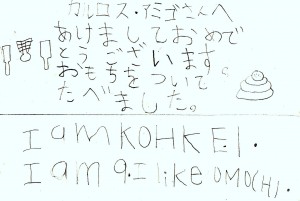 カルロス・アミゴさんへ
あけましておめで
とうございます。
おもちをついて
たべました。
I am KOHKEI.
I am 9. I like OMOCHI.